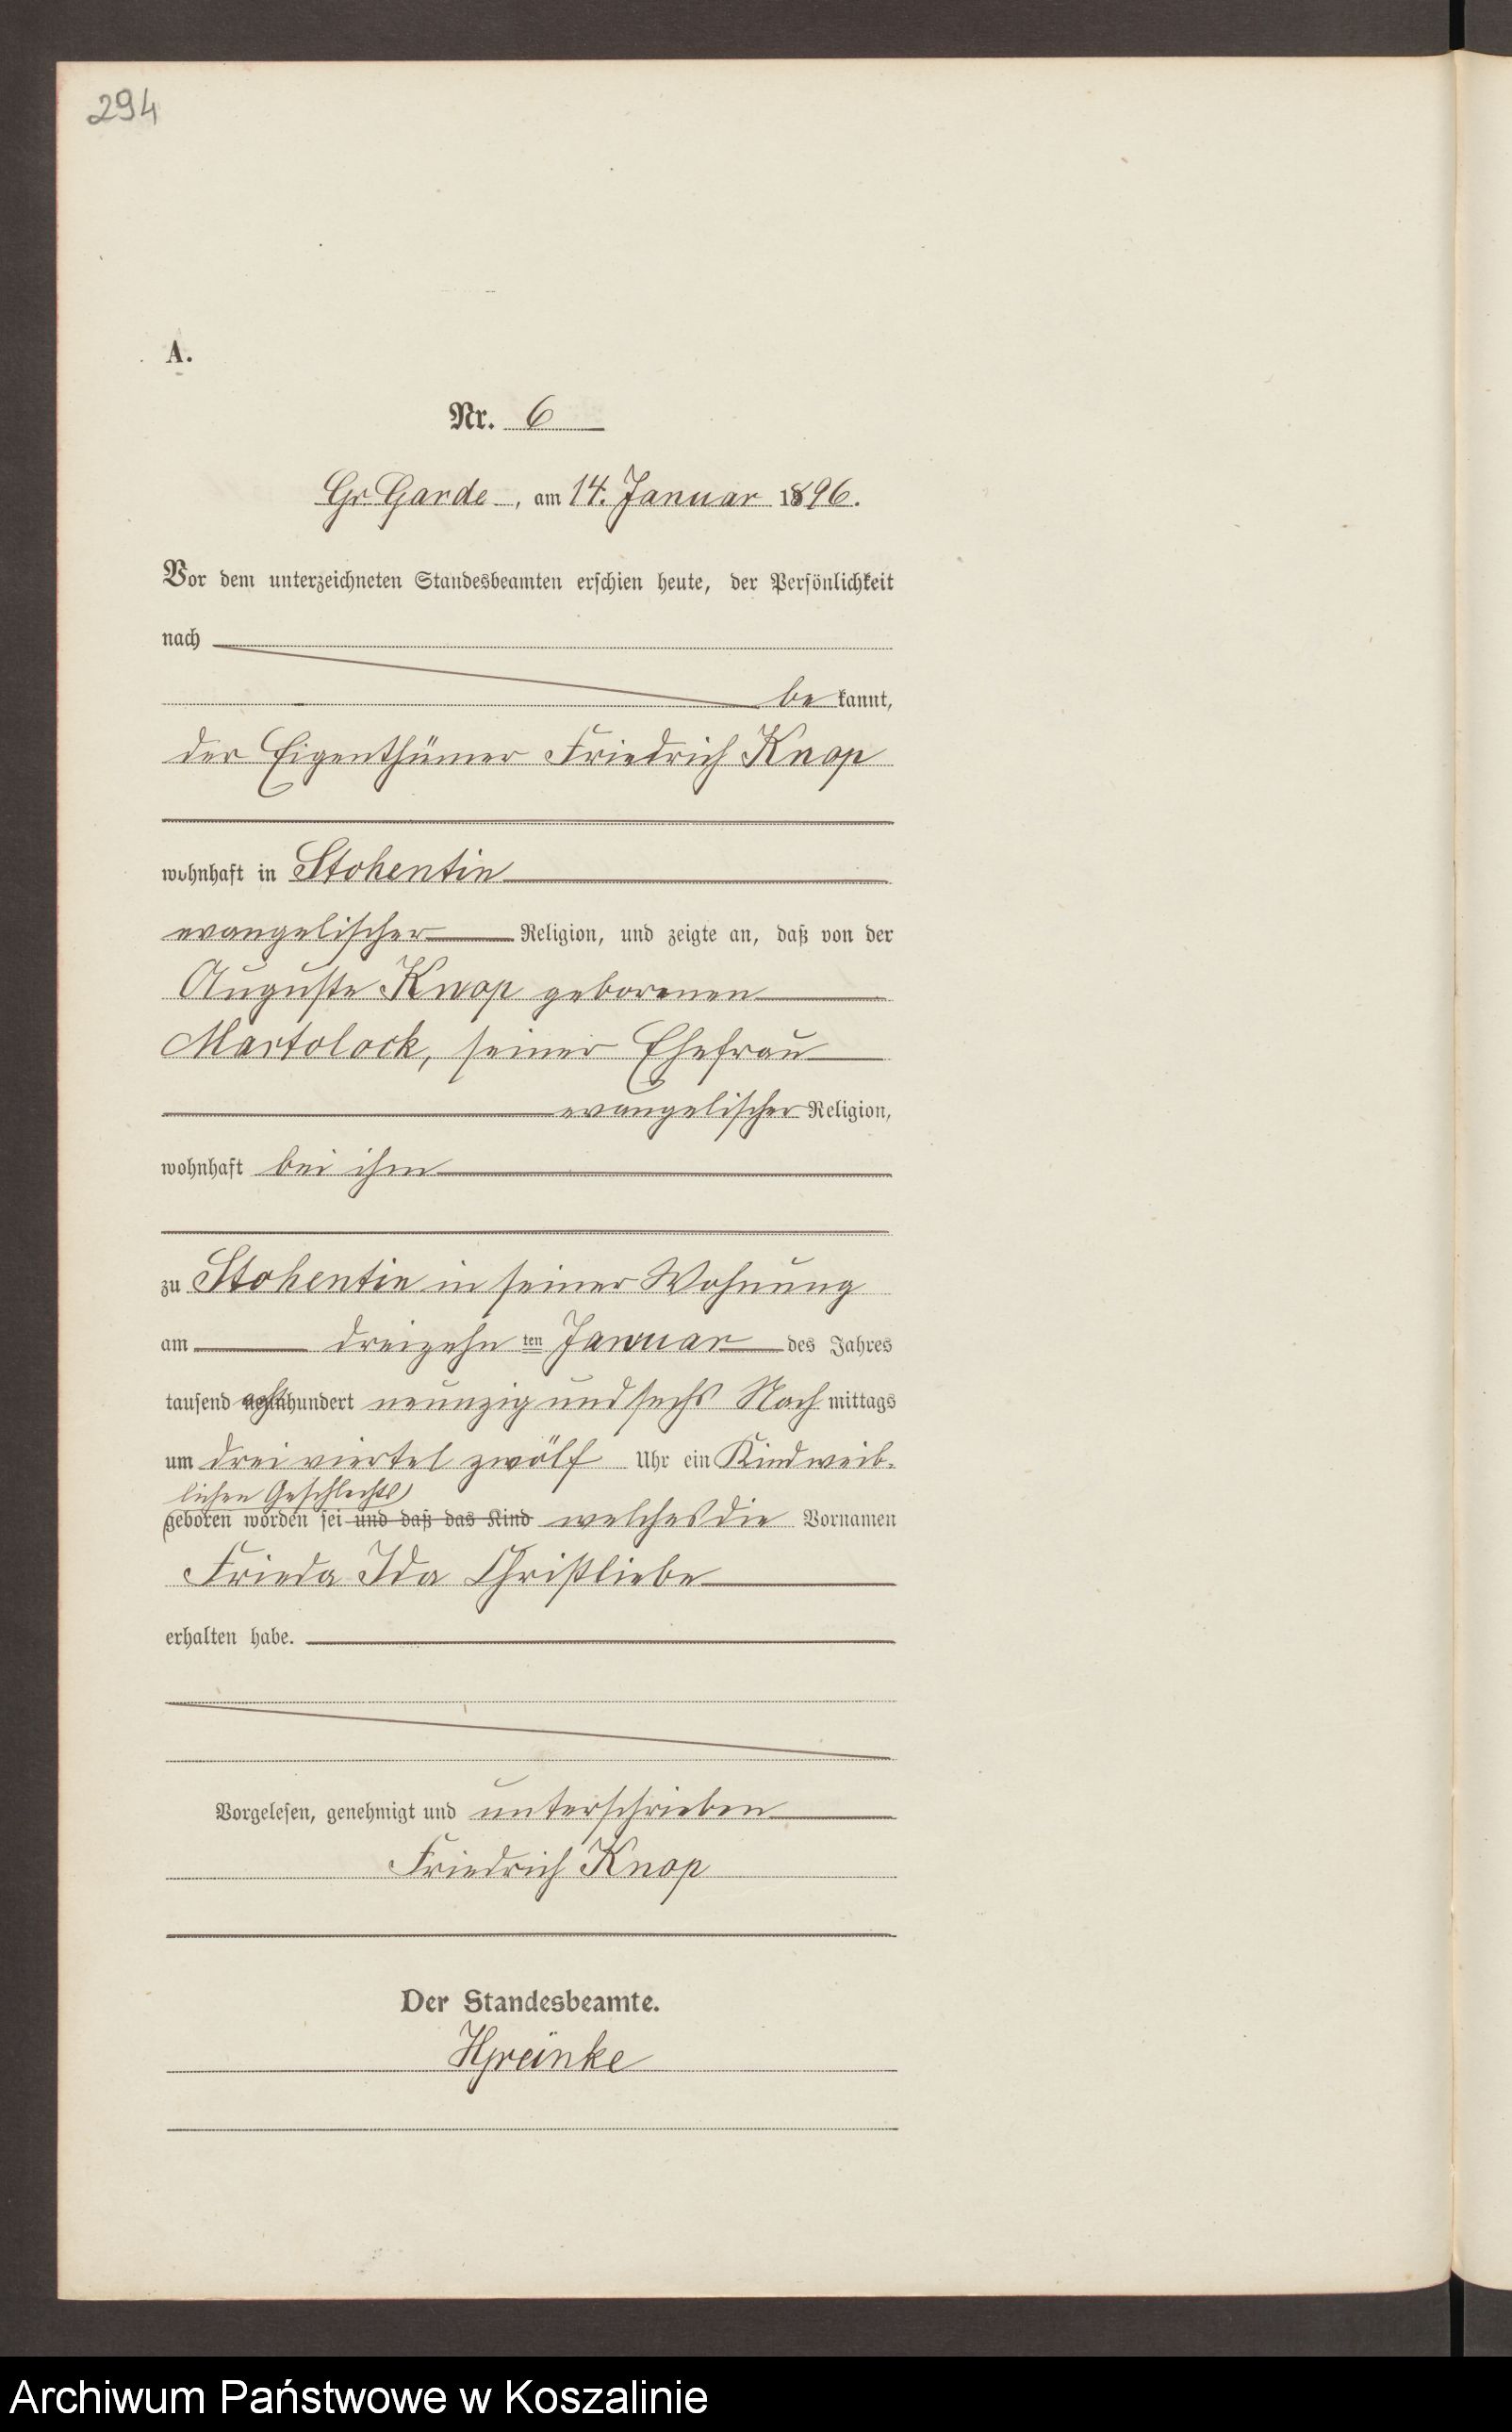 294
A.
Nr. 6
Gr. Garde, am 14. Januar 1896.
Vor dem unterzeichneten Standesbeamten erschien heute, der Persönlichkeit
nach
be kannt,
der Eigenthümer Friedrich Knop
wohnhaft in Stohentin
evangelischer Religion, und zeigte an, daß von der
Auguste Knop geborenen
Martolock, seiner Ehefrau
evangelischer Religion,
wohnhaft bei ihm
zu Stohentin in seiner Wohnung
am dreizehn ten Januar des Jahres
tausend acht hundert neunzig und sechs Nach mittags
um drei viertel zwölf Uhr ein Kind weib-
lichen Geschlechts
geboren worden sei und daß das Kind welches die Vornamen
Frieda Ida Christliebe
erhalten habe.
Vorgelesen, genehmigt und unterschrieben
Friedrich Knop
Der Standesbeamte.
Archiwum Państwowe w Koszalinie